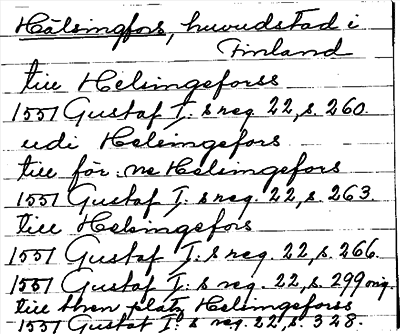 Hälsingfors, huvudstad i
Finland
till Helsingeforss
1551 Gustaf I:s reg. 22, s. 260.
udi Helsingefors
till för:ne Helsingefors
1551 Gustaf I:s reg. 22, s. 263.
till Helsingefors
1551 Gustaf I:s reg. 22, s. 266.
1551 Gustaf I:s reg. 22, s. 299 orig.
till then platz Helsingeforss
1551 Gustaf I:s reg. 22, s. 328.